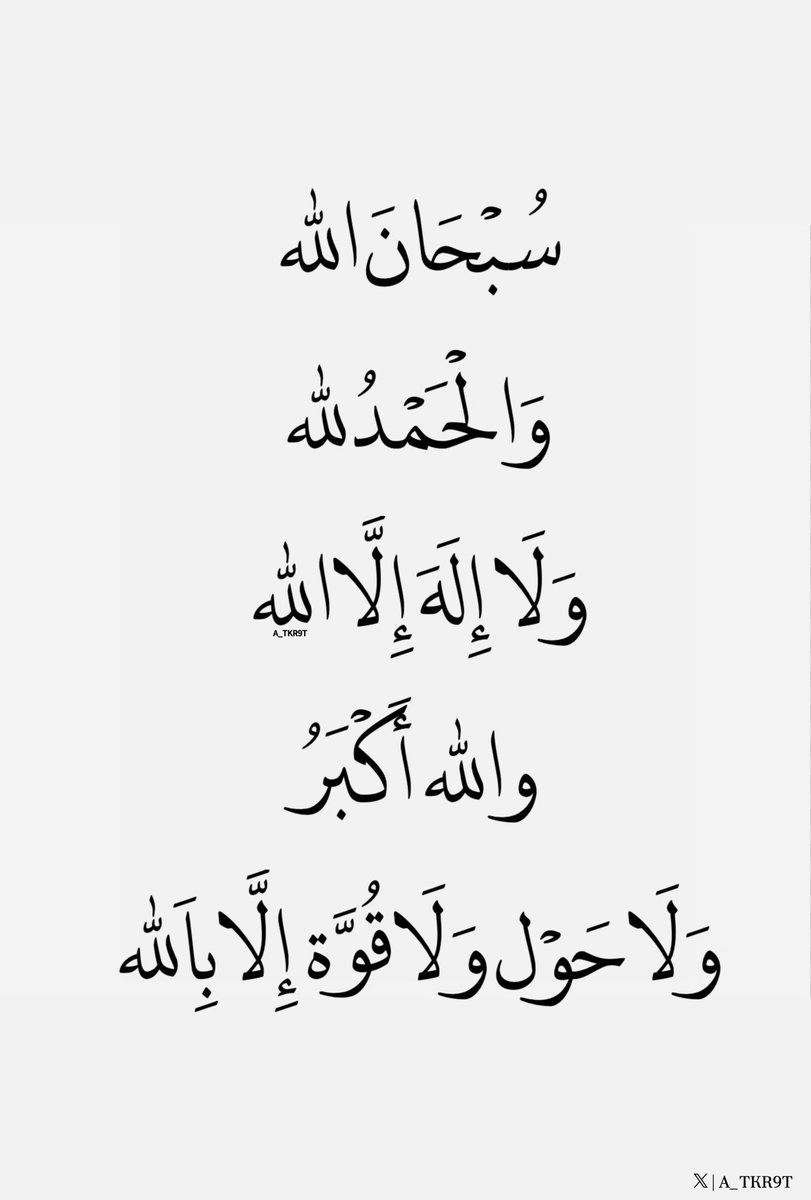 سُبْحَانَ الله
وَالْحَمْدُ لله
وَلَا إِلَهَ إِلَّا الله
A_TKR9T
والله أَكْبَرُ
وَلَا حَوْل وَلَا قُوَّة إِلَّا بِاَلله
𝕏 | A_TKR9T